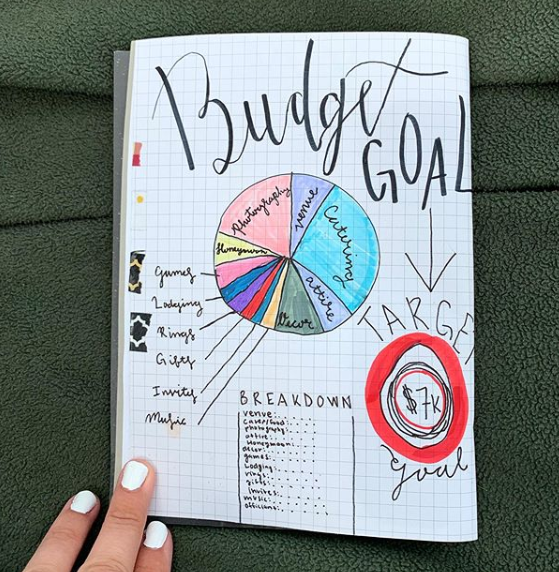 Budget
GOAL
Photography
Venue
Catering
Honeymoon
attire
Decor
Games
Lodging
Rings
Gifts
Invity
Music
TARGET
$7K
Goal
BREAKDOWN
venue:
Cater/food:
photography:
attire:
Honeymoon:
decor:
games:
Lodging:
rings:
gifts:
invites:
music:
officiant: